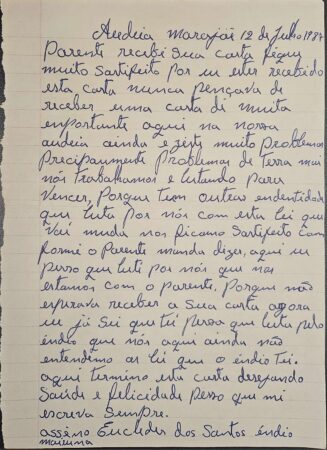 Audeia marajai 12 de Julho 1987
Parente recebi sua carta fiquei
muito Sartifeito por eu eter recebido
esta carta nunca pençava de
receber uma carta di muita
enportante aqui na nossa
audeia ainda ezeste muito problemas
precipaumente problemas de terra mais
nós trabalhamos e lutando para
vencer, Porque tem outras endentidade
que luta por nós com esta lei que
vai muda nos ficamo Sartisfeito com
formi o Parente manda dizer, aqui eu
pesso que luti por nós que nos
estamos com o parente, Porque não
esperava receber a sua carta agora
eu já sei que tei pessoa que luta pelo
éndio que nós aqui ainda não
entendimo as lei que o éndio tei.
aqui termino esta carta desejando
Saúde e felicidade pesso que mi
escreva sempre.
assino Euclides dos Santos éndio